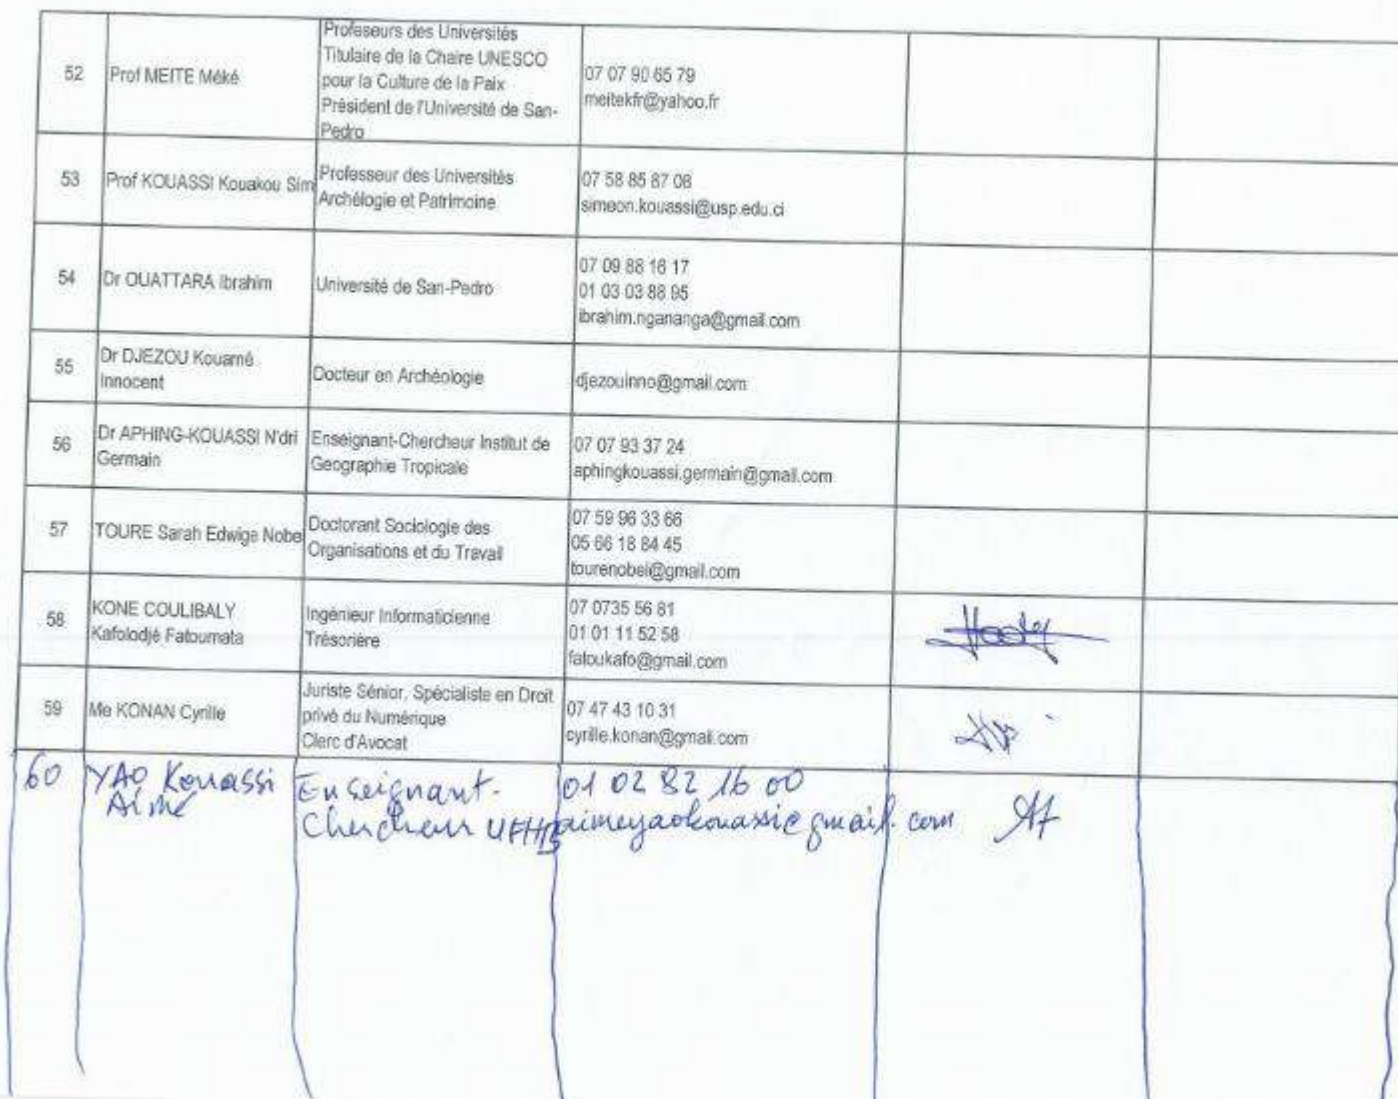 52
Prof MEITE Méké
Profeseurs des Universités
Titulaire de la Chaire UNESCO
pour la Culture de la Paix
Président de l'Université de San-
Pedro
07 07 90 65 79
meitekfr@yahoo.fr
53
Prof KOUASSI Kouakou Sim
Professeur des Universités
Archélogie et Patrimoine
07 58 85 87 08
simeon.kouassi@usp.edu.ci
54
Dr OUATTARA Ibrahim
Université de San-Pedro
07 09 88 16 17
01 03 03 88 95
ibrahim.ngananga@gmail.com
55
Dr DJEZOU Kouamé
Innocent
Docteur en Archéologie
djezouinno@gmail.com
56
Dr APHING-KOUASSI N'dri
Germain
Enseignant-Chercheur Institut de
Geographie Tropicale
07 07 93 37 24
aphingkouassi.germain@gmail.com
57
TOURE Sarah Edwige Nobel
Doctorant Sociologie des
Organisations et du Travail
07 59 96 33 66
05 66 18 84 45
tourenobel@gmail.com
58
KONE COULIBALY
Kafolodjé Fatoumata
Ingénieur Informaticienne
Trésorière
07 0735 56 81
01 01 11 52 58
fatoukafo@gmail.com
59
Me KONAN Cyrille
Juriste Sénior, Spécialiste en Droit
privé du Numérique
Clerc d'Avocat
07 47 43 10 31
cyrille.konan@gmail.com
60
YAO Kouassi
Aimé
Enseignant-
Chercheur UFHB
01 02 82 16 00
aimeyaokouassi@gmail.com